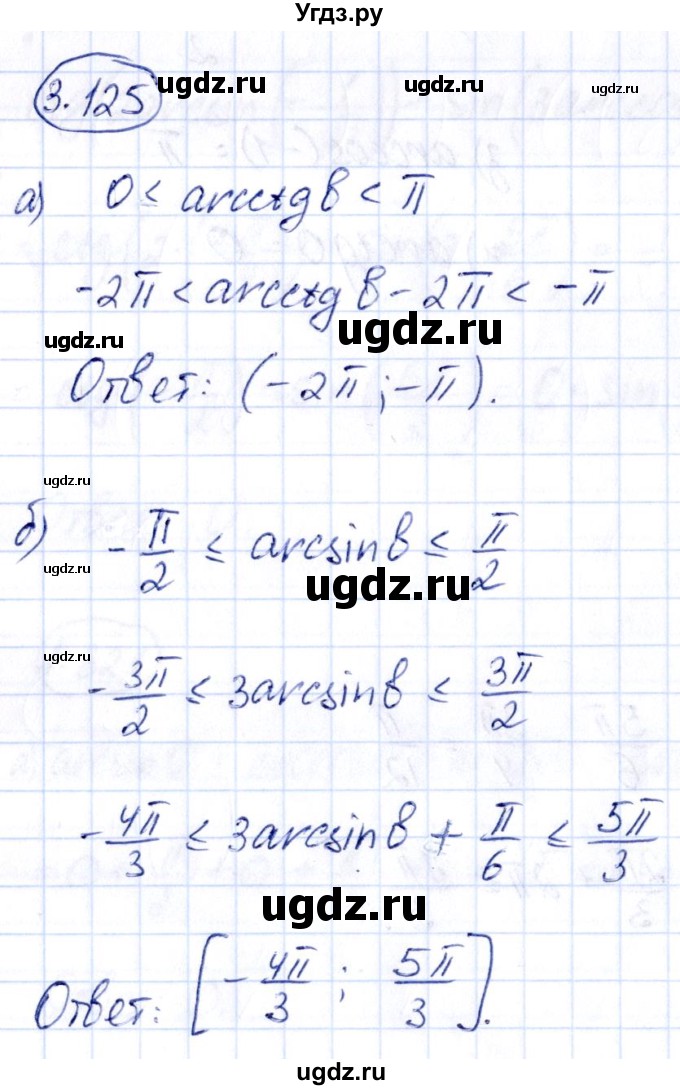 Угдз.ру
3.125
ugdz.ru ugdz.ru ugdz.ru
а) 0 ≤ arcctg b < π
-2π < arcctg b - 2π < -π
ugdz.ru ugdz.ru
Ответ: (-2π; -π).
ugdz.ru
б) -π/2 ≤ arcsin b ≤ π/2
ugdz.ru ugdz.ru
ugdz.ru
-3π/2 ≤ 3arcsin b ≤ 3π/2
-4π/3 ≤ 3arcsin b + π/6 ≤ 5π/3
ugdz.ru
Ответ: [-4π/3; 5π/3].
ugdz.ru